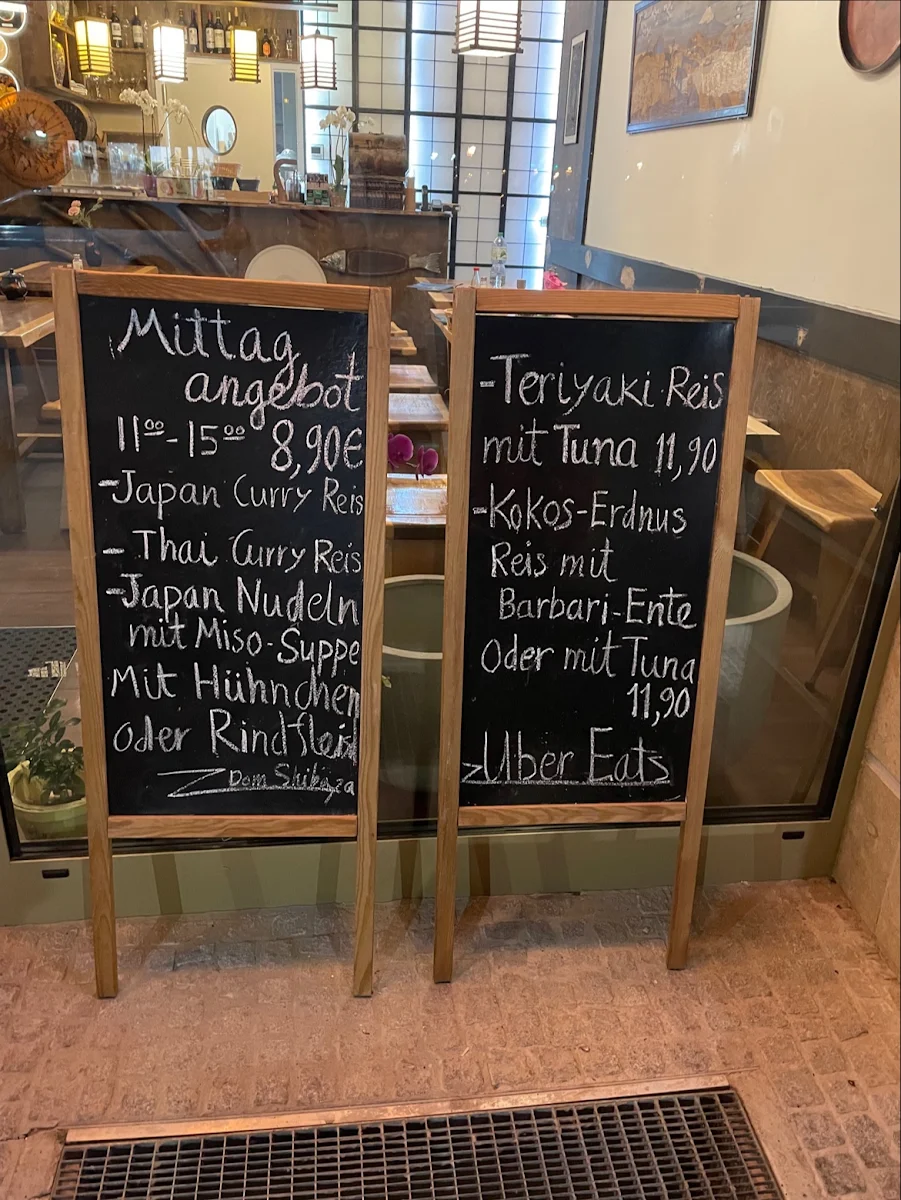 Mittag
angebot
11⁰⁰-15⁰⁰ 8,90€
-Japan Curry Reis
- Thai Curry Reis
-Japan Nudeln
mit Miso-Suppe
Mit Hühnchen
oder Rindfleisch
-Teriyaki Reis
mit Tuna 11,90
-Kokos-Erdnus
Reis mit
Barbari-Ente
Oder mit Tuna
11,90
>Uber Eats